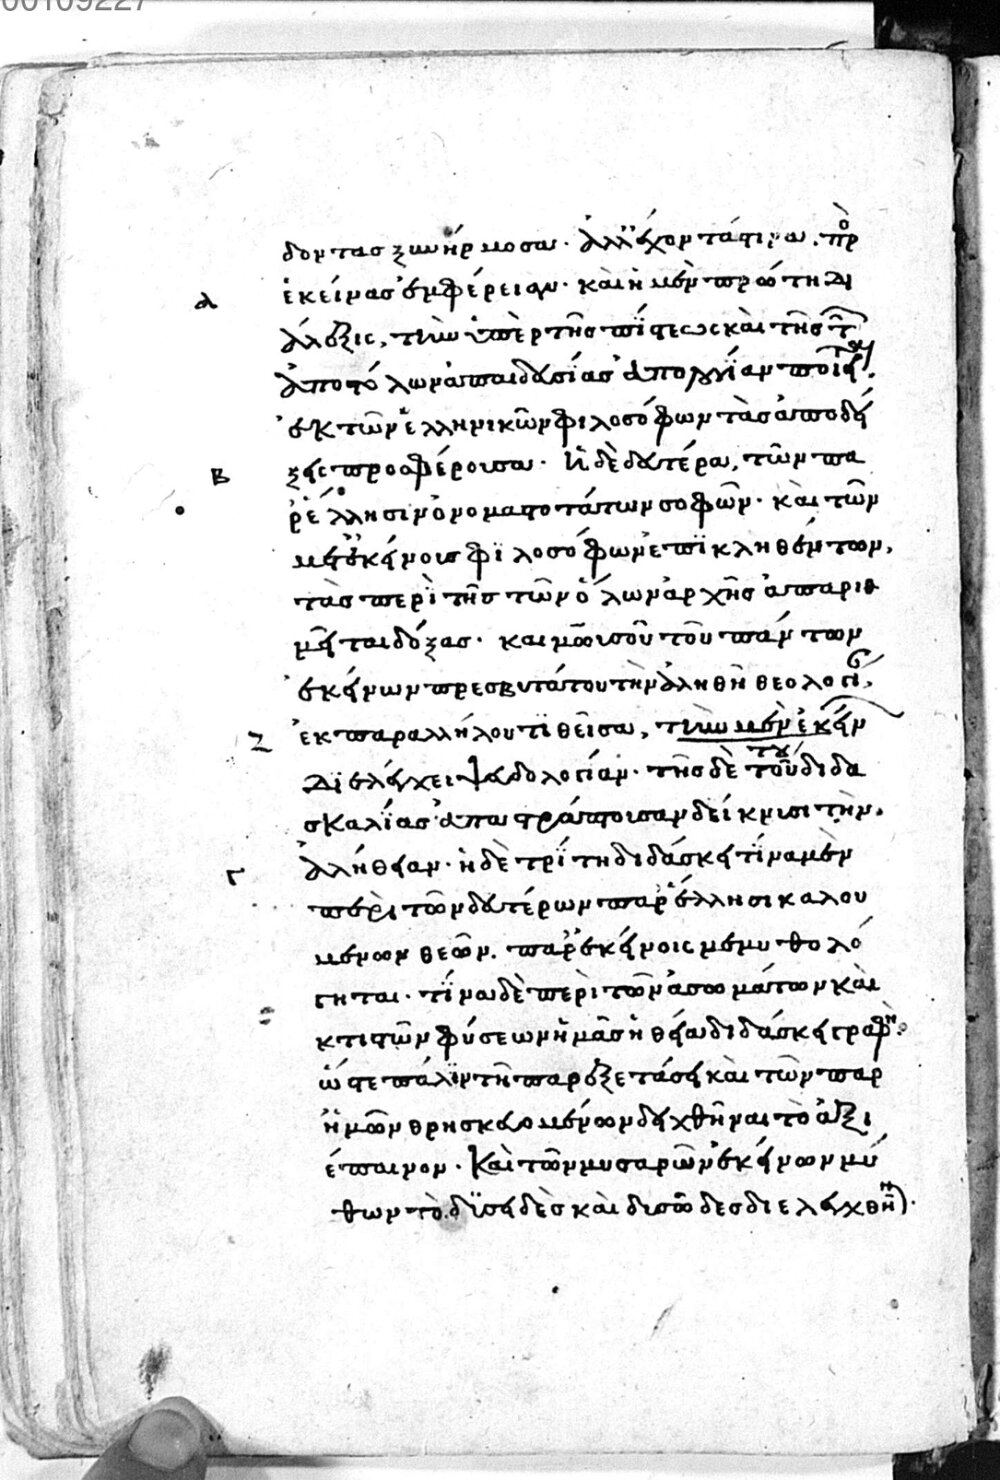 00109227
δοντας ξυνήρμοσα. ἀλλ' ἔχοντά τινα πρὸ
α ἐκείνας ἐμφέρειαν. καὶ ἡ μὲν πρώτη δι
άλεξις, τὴν ὑπὲρ τῆς πίστεως καὶ τῆς τῶν
ἀποστόλων ἀπαιδευσίας ἀπολογίαν ποιεῖται.
ἐκ τῶν ἑλληνικῶν φιλοσόφων τὰς ἀποδεί
β ξεις προσφέρουσα. ἡ δὲ δευτέρα, τῶν πα
ρ' ἕλλησιν ὀνομαστοτάτων σοφῶν. καὶ τῶν
μετ' ἐκείνοις φιλοσόφων ἐπικληθέντων,
τὰς περὶ τῆς τῶν ὅλων ἀρχῆς ἀπαριθ
μεῖται δόξας. καὶ μωϊσοῦ τοῦ πάντων
ἐκείνων πρεσβυτάτου τὴν ἀληθῆ θεολογίαν,
ἐκ παραλλήλου τιθεῖσα, τὴν μὲν ἐκείνων
διελέγχει ψευδολογίαν. τῆς δὲ τούτου διδα
σκαλίας ἀπαστράπτουσαν δείκνυσι τὴν
γ ἀλήθειαν. ἡ δὲ τρίτη διδάσκει τίνα μὲν
περὶ τῶν δευτέρων παρ' ἕλλησι καλου
μένων θεῶν. παρ' ἐκείνοις μεμυθολό
γηται. τίνα δὲ περὶ τῶν ἀσωμάτων καὶ
κτιστῶν φύσεων ἡμᾶς ἡ θεία διδάσκει γραφὴ.
ὥστε πάλιν τῇ παρεξετάσει καὶ τῶν παρ
ἡμῶν θρησκευομένων δειχθῆναι τὸ ἀξι
έπαινον. καὶ τῶν μυσαρῶν ἐκείνων μύ
θων τὸ δυσειδὲς καὶ δυσῶδες διελεγχθῆναι.